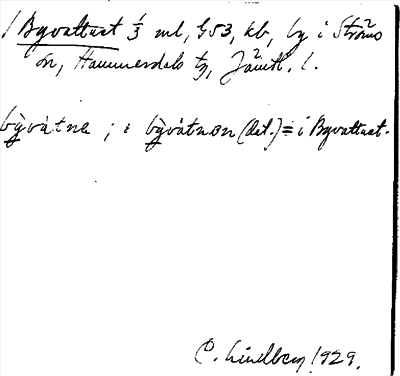 1 Byvattnet 1/3 ml, G53, kb, by i Ströms
sn, Hammerdals tg, Jämtl. l.
by̆vàtne ; i by̆vàtnən (dat.) = i Byvattnet.
C. Lindberg 1929.